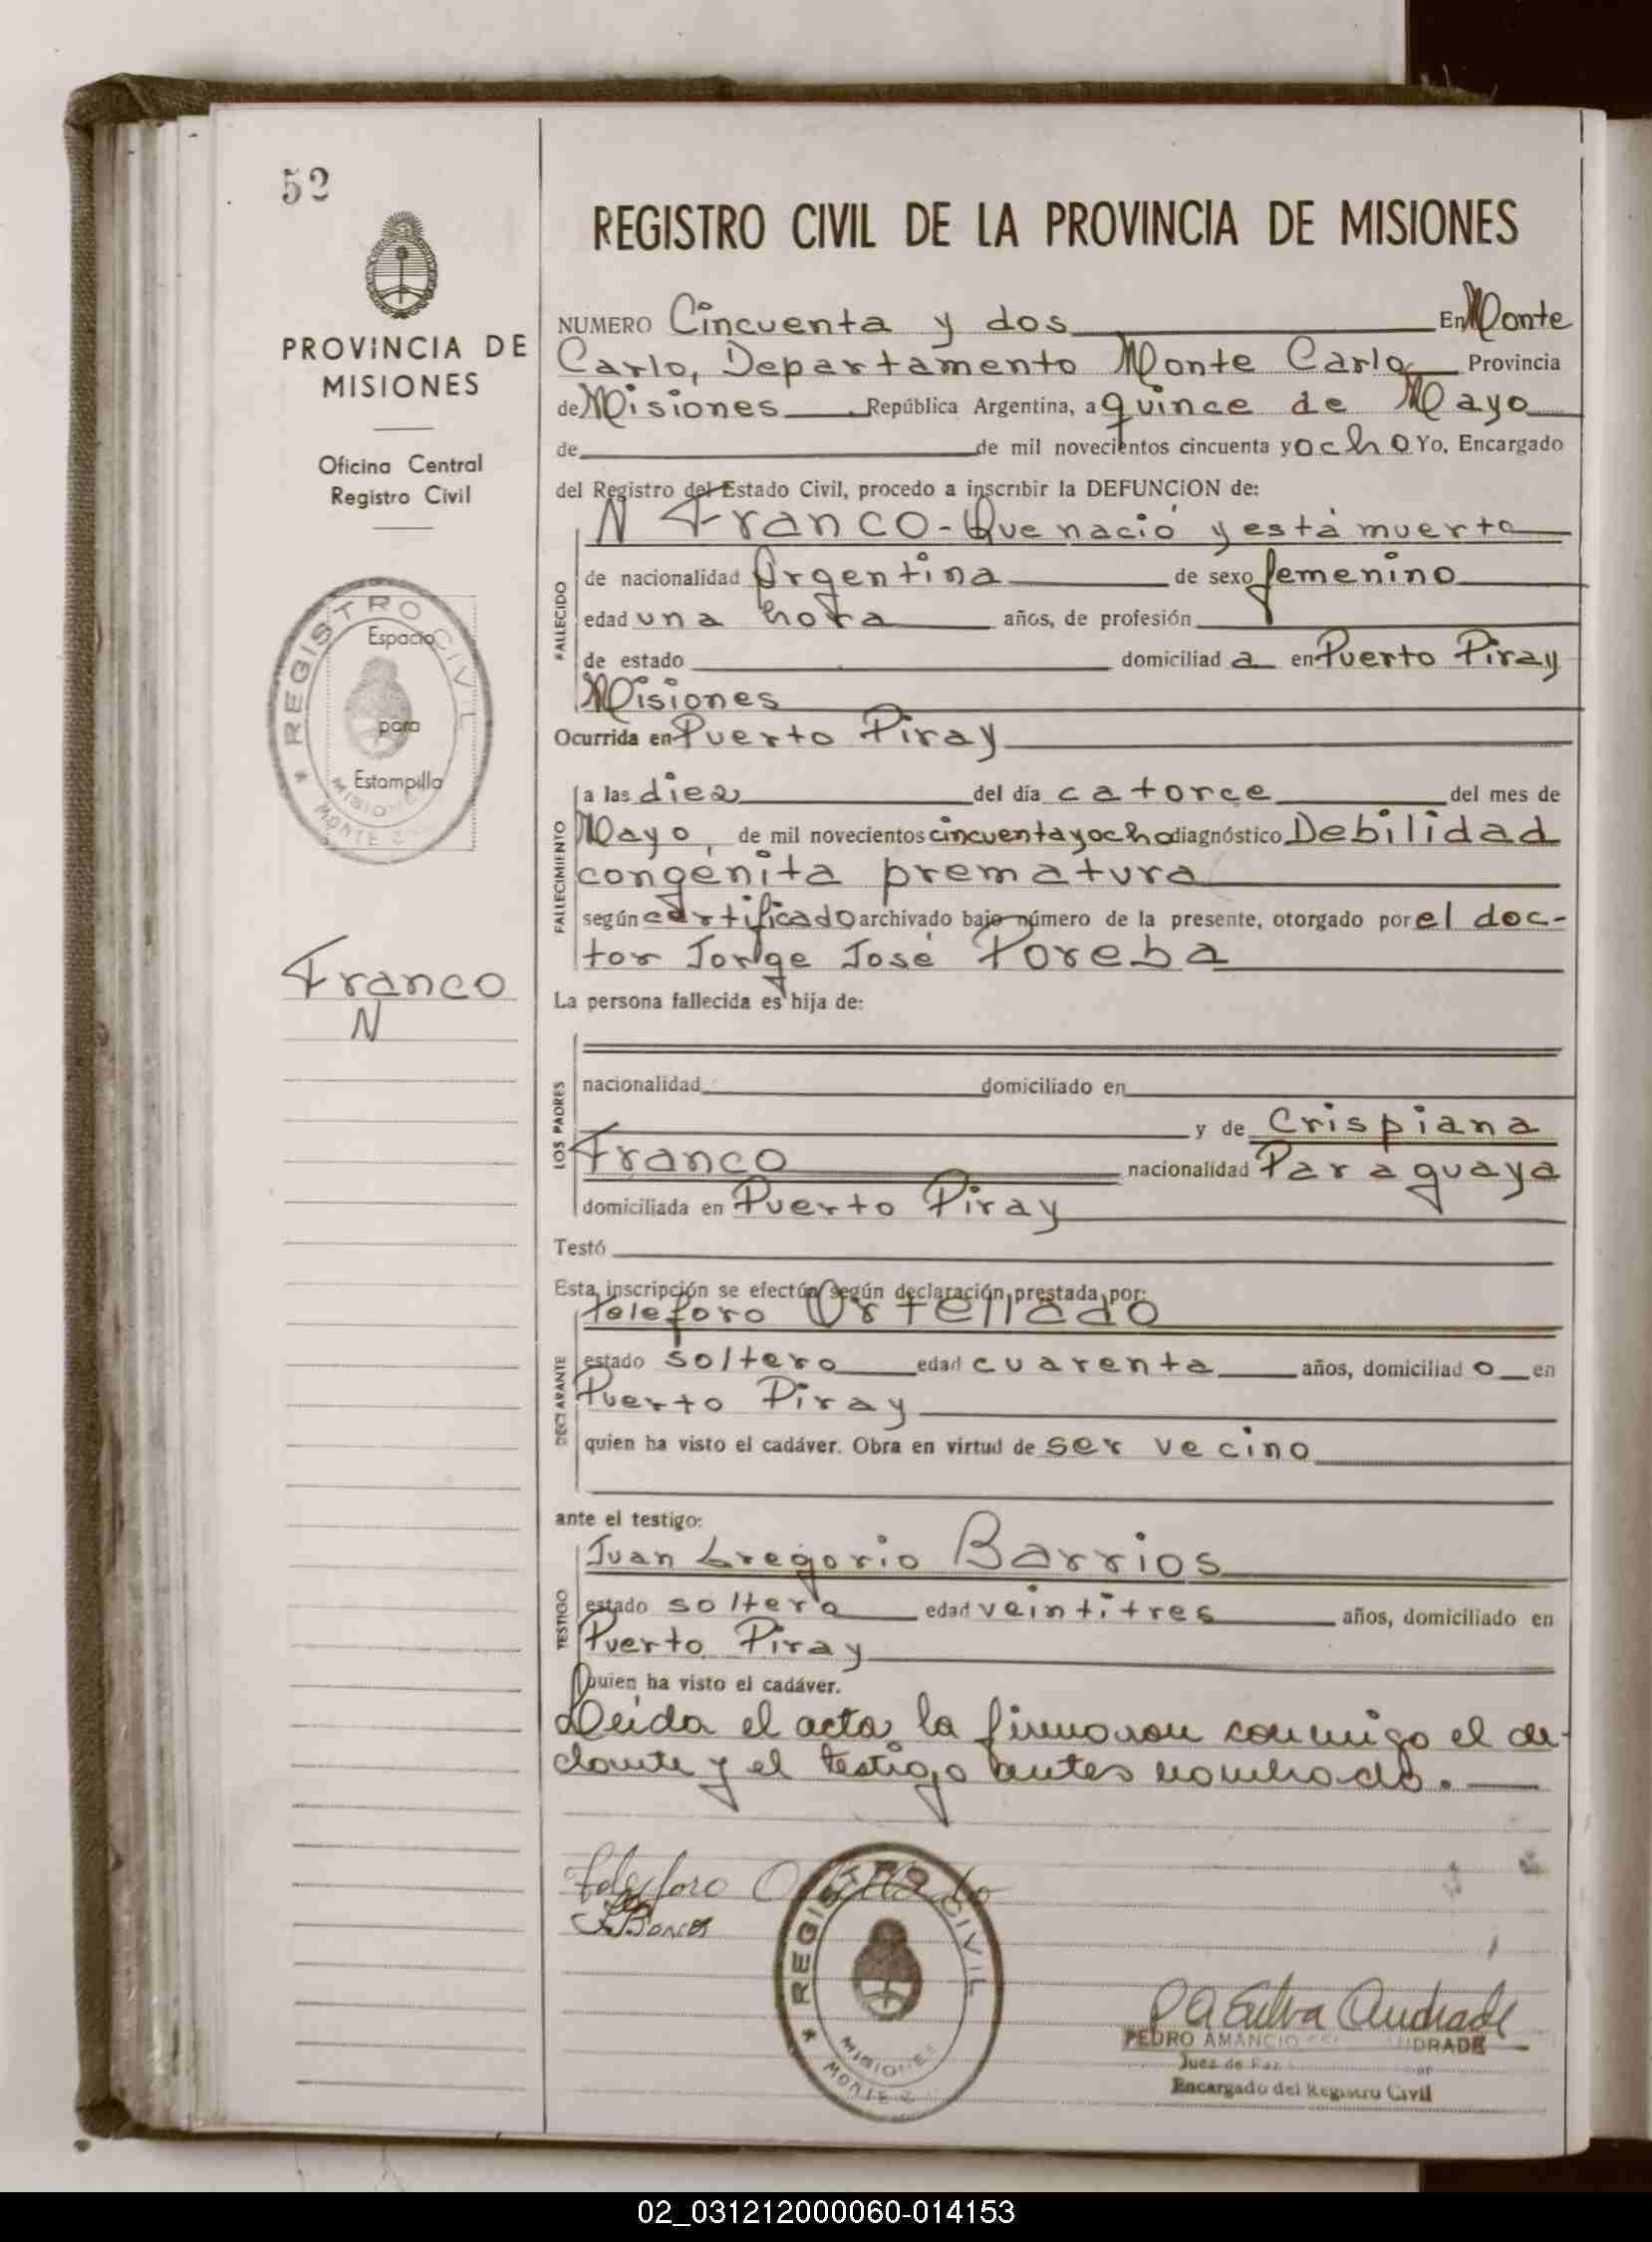 52
PROVINCIA DE
MISIONES
Oficina Central
Registro Civil
REGISTRO CIVIL
Espacio
para
Estampilla
MISIONES
MONTE C
Franco
N
REGISTRO CIVIL DE LA PROVINCIA DE MISIONES
NUMERO Cincuenta y dos En Monte
Carlo, Departamento Monte Carlo Provincia
de Misiones República Argentina, a quince de Mayo
de de mil novecientos cincuenta y ocho Yo, Encargado
del Registro del Estado Civil, procedo a inscribir la DEFUNCION de:
N Franco - Que nació y está muerto
FALLECIDO
de nacionalidad Argentina de sexo femenino
edad una hora años, de profesión
de estado domiciliad a en Puerto Piray
Misiones
Ocurrida en Puerto Piray
FALLECIMIENTO
a las diez del día catorce del mes de
Mayo, de mil novecientos cincuenta y ocho diagnóstico Debilidad
congénita prematura
según certificado archivado bajo número de la presente, otorgado por el doc-
tor Jorge José Poreba
La persona fallecida es hija de:
LOS PADRES
nacionalidad domiciliado en
y de Crispiana
Franco nacionalidad Paraguaya
domiciliada en Puerto Piray
Testó
Esta inscripción se efectúa según declaración prestada por:
Teleforo Ortellado
DECLARANTE
estado soltero edad cuarenta años, domiciliad o en
Puerto Piray
quien ha visto el cadáver. Obra en virtud de ser vecino
ante el testigo:
Juan Gregorio Barrios
TESTIGO
estado soltero edad veintitres años, domiciliado en
Puerto Piray
Quien ha visto el cadáver.
Leída el acta, la firmaron conmigo el de-
clarante y el testigo antes nombrado.
Telesforo Ortellado
REGISTRO CIVIL
MISIONES
MONTE C
P A Silva Andrade
PEDRO AMANCIO ANDRADE
Juez de Paz
Encargado del Registro Civil
02_031212000060-014153